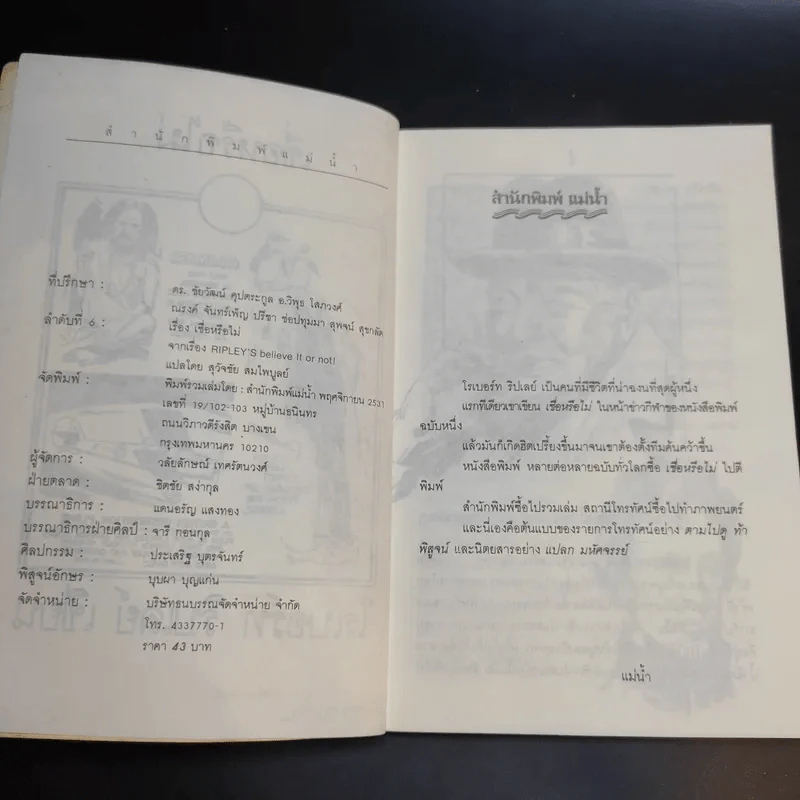 สำนักพิมพ์แม่น้ำ
ที่ปรึกษา : ดร. ชัยวัฒน์ คุปตระกูล อ.วิพุธ โสภวงศ์
ณรงค์ จันทร์เพ็ญ ปรีชา ช่อปทุมมา สุพจน์ สุขกลัด
ลำดับที่ 6 : เรื่อง เชื่อหรือไม่
จากเรื่อง RIPLEY'S believe It or not!
แปลโดย สุวัจชัย สมไพบูลย์
จัดพิมพ์ : พิมพ์รวมเล่มโดย : สำนักพิมพ์แม่น้ำ พฤศจิกายน 2531
เลขที่ 19/102-103 หมู่บ้านธนินทร
ถนนวิภาวดีรังสิต บางเขน
กรุงเทพมหานคร 10210
ผู้จัดการ : วลัยลักษณ์ เทศรัตนวงศ์
ฝ่ายตลาด : ชิตชัย สง่ากุล
บรรณาธิการ : แดนอรัญ แสงทอง
บรรณาธิการฝ่ายศิลป์ : จารี กอนกุล
ศิลปกรรม : ประเสริฐ บุตรจันทร์
พิสูจน์อักษร : บุบผา บุญแก่น
จัดจำหน่าย : บริษัทธนบรรณจัดจำหน่าย จำกัด
โทร. 4337770-1
ราคา 43 บาท
สำนักพิมพ์ แม่น้ำ
โรเบอร์ท ริปเลย์ เป็นคนที่มีชีวิตที่น่าฉงนที่สุดผู้หนึ่ง
แรกทีเดียวเขาเขียน เชื่อหรือไม่ ในหน้าข่าวกีฬาของหนังสือพิมพ์
ฉบับหนึ่ง
แล้วมันก็เกิดฮิตเปรี้ยงขึ้นมาจนเขาต้องตั้งทีมค้นคว้าขึ้น
หนังสือพิมพ์ หลายต่อหลายฉบับทั่วโลกซื้อ เชื่อหรือไม่ ไปตี
พิมพ์
สำนักพิมพ์ซื้อไปรวมเล่ม สถานีโทรทัศน์ซื้อไปทำภาพยนตร์
และนี่เองคือต้นแบบของรายการโทรทัศน์อย่าง ตามไปดู ท้า
พิสูจน์ และนิตยสารอย่าง แปลก มหัศจรรย์
แม่น้ำ